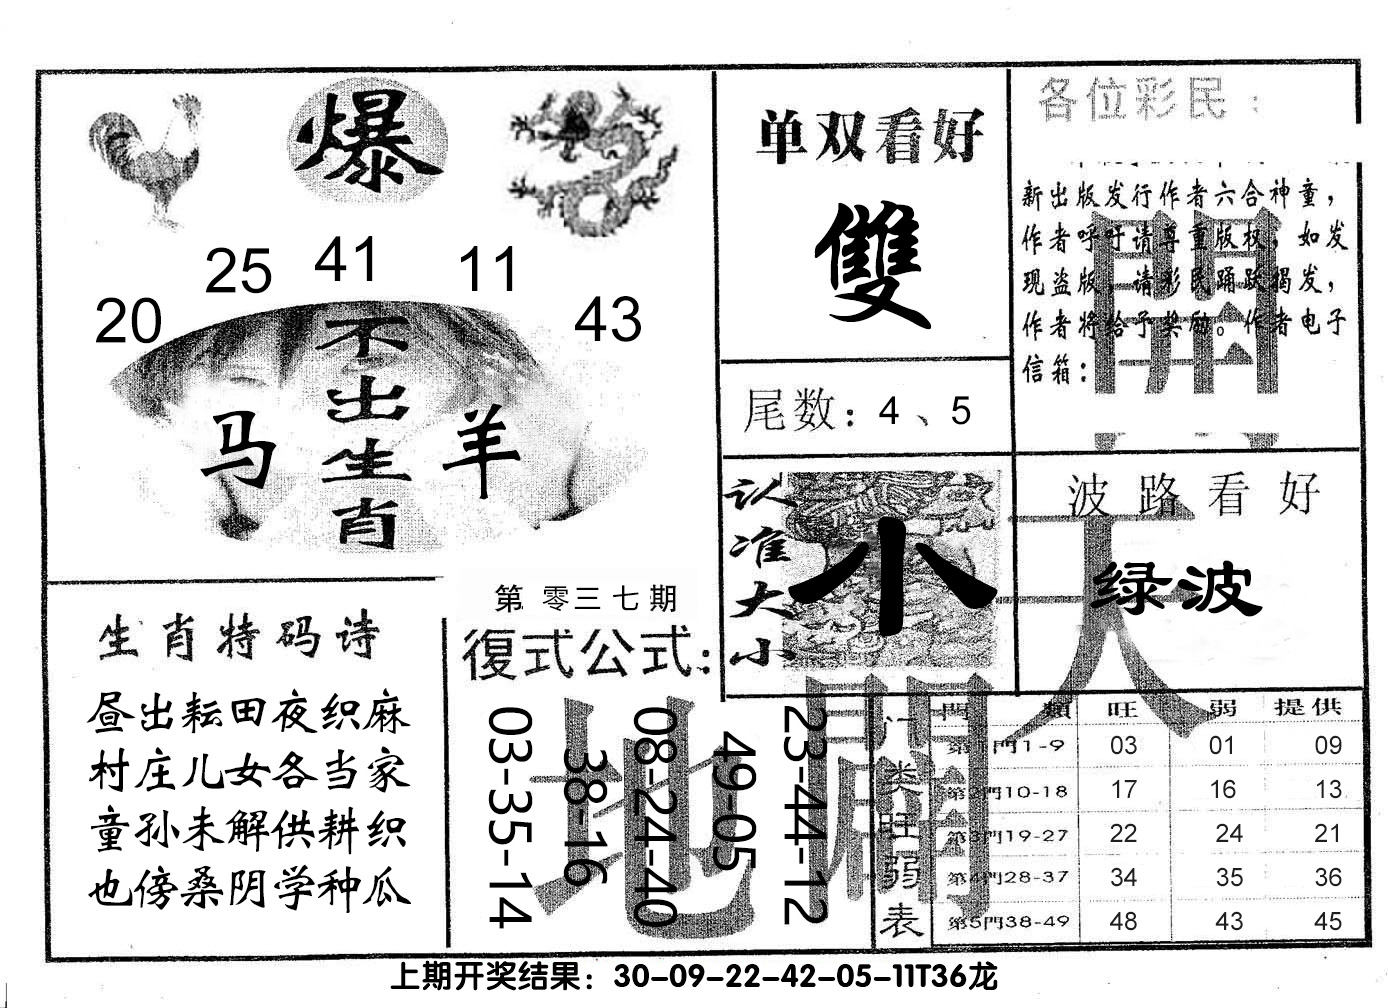 爆
25 41 11
20 43
不出生肖
马 羊
单双看好
雙
尾数：4、5
认准大小
小
各位彩民：
新出版发行作者六合神童，
作者呼吁请尊重版权，如发
现盗版，请彩民踊跃揭发，
作者将给予奖励。作者电子
信箱：
波路看好
绿波
生肖特码诗
昼出耘田夜织麻
村庄儿女各当家
童孙未解供耕织
也傍桑阴学种瓜
第零三七期
復式公式：
03-35-14
38-16
08-24-40
49-05
23-44-12
天
地
開
開
门类旺弱表
門類 旺 弱 提供
第1門1-9 03 01 09
第2門10-18 17 16 13
第3門19-27 22 24 21
第4門28-37 34 35 36
第5門38-49 48 43 45
上期开奖结果：30-09-22-42-05-11T36龙